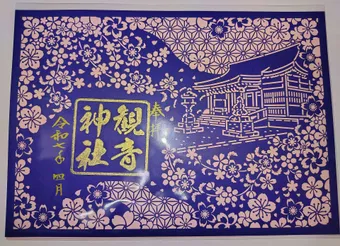 奉拝
観音
神社
令和七年四月